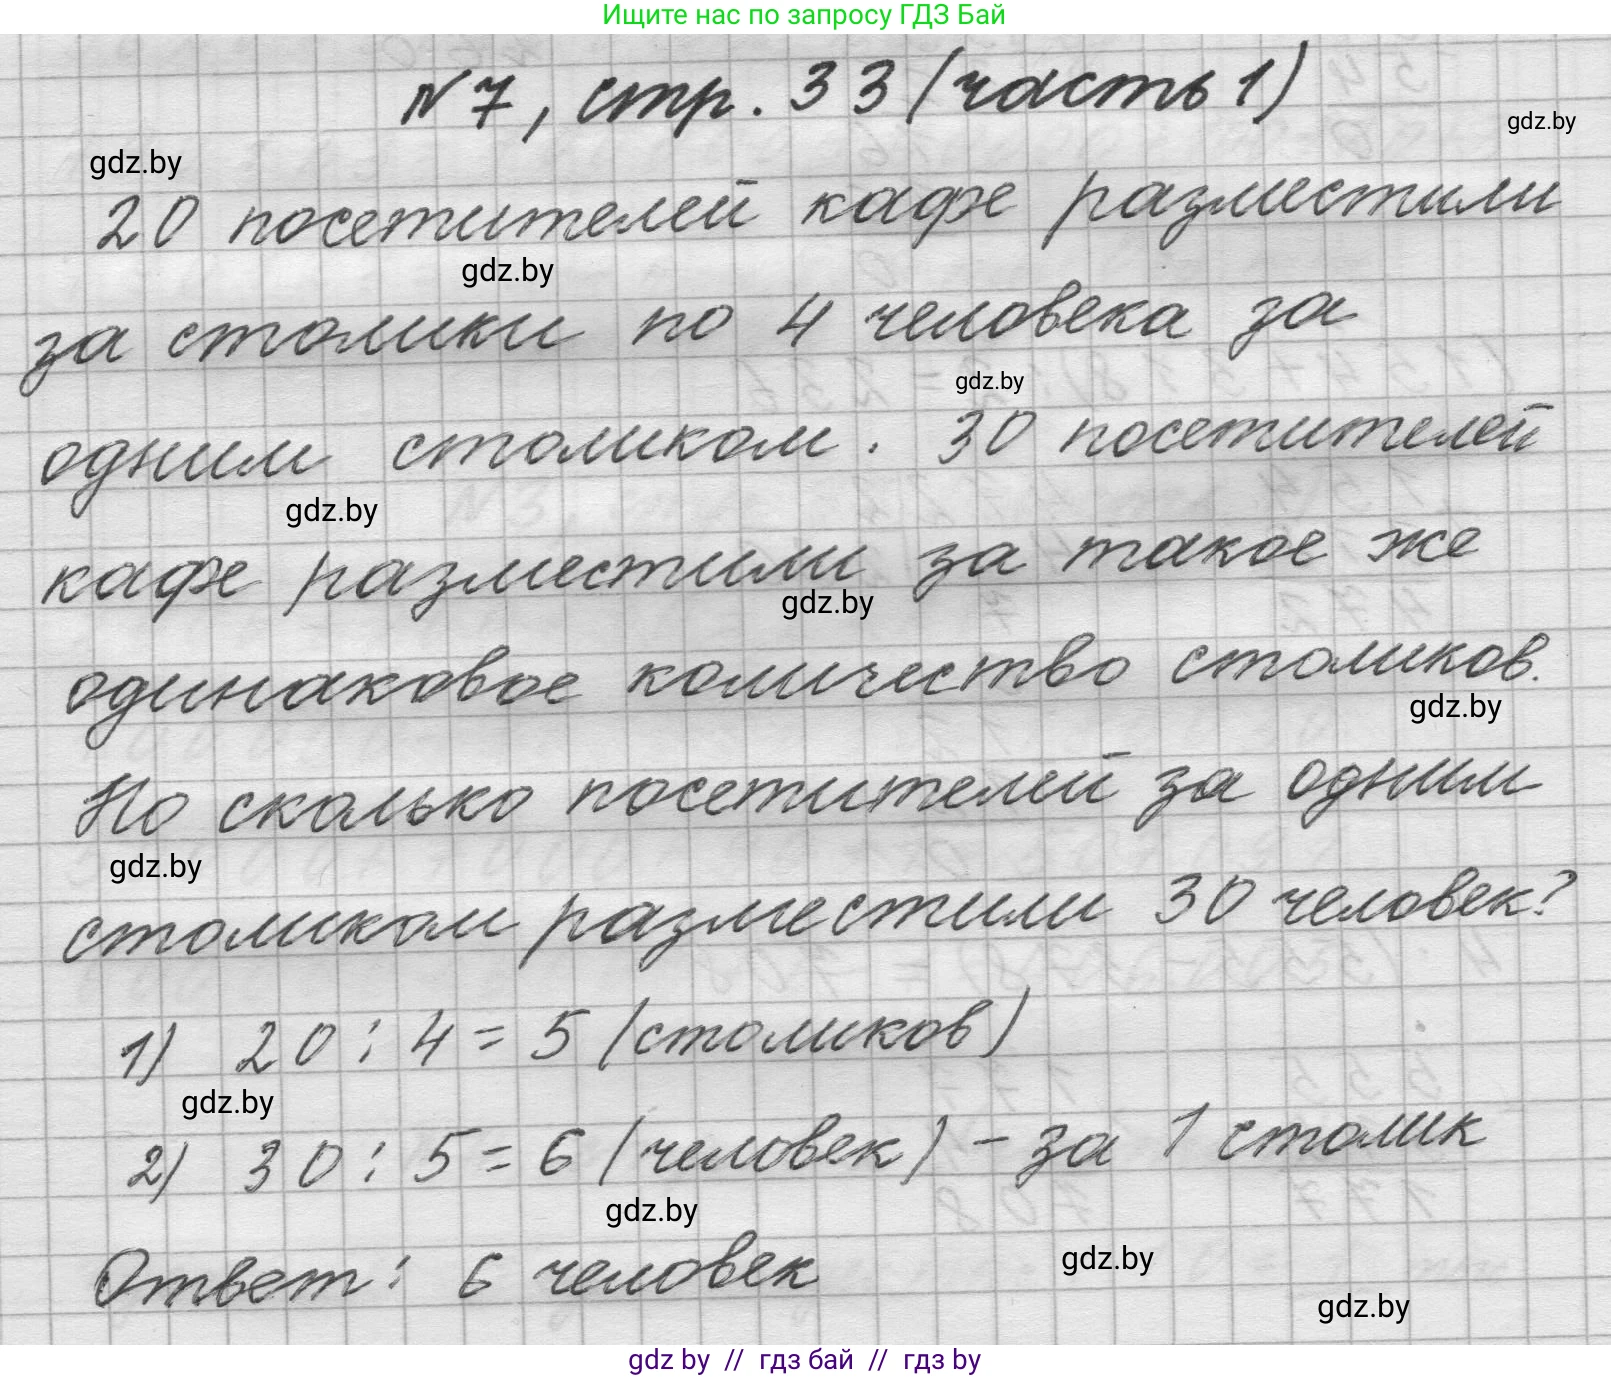 Ищите нас по запросу ГДЗ Бай
№7, стр. 33 (часть 1)
gdz.by
gdz.by
20 посетителей кафе разместили
gdz.by
за столики по 4 человека за
gdz.by
одним столиком. 30 посетителей
gdz.by
кафе разместили за такое же
gdz.by
одинаковое количество столиков.
gdz.by
По сколько посетителей за одним
gdz.by
столиком разместили 30 человек?
1) 20 : 4 = 5 (столиков)
gdz.by
2) 30 : 5 = 6 (человек) - за 1 столик
gdz.by
Ответ: 6 человек
gdz.by
gdz.by
gdz by // гдз бай // гдз by